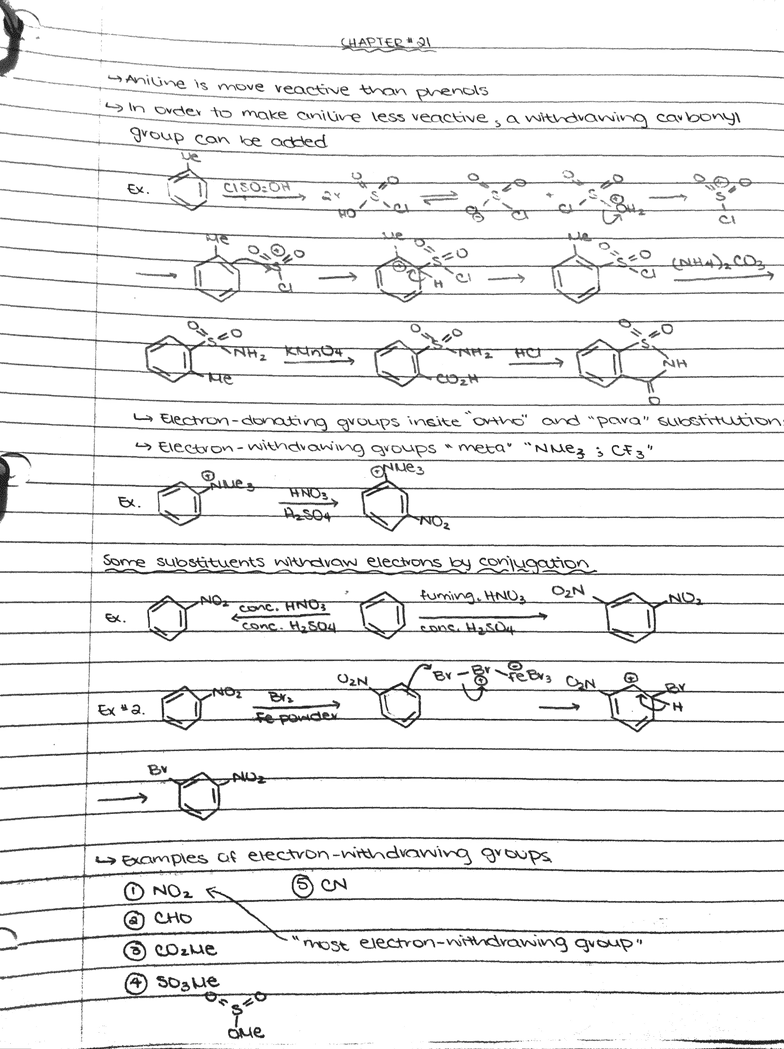 CHAPTER # 21
↳ Aniline is more reactive than phenols
↳ In order to make aniline less reactive, a withdrawing carbonyl
group can be added
Me
Ex. ClSO2OH → 2x HO O O S Cl ⇌ O O S O Cl + O O S Cl OH2 → O O S Cl
→ Me O O S Cl → Me O O S Cl H → Me O O S Cl (NH4)2CO3
O O S NH2 Me KMnO4 O O S NH2 CO2H HCl O O S NH O
↳ Electron-donating groups insite "ortho" and "para" substitution
↳ Electron-withdrawing groups "meta" "NMe3 ; CF3"
Ex. NMe3 HNO3 H2SO4 NMe3 NO2
Some substituents withdraw electrons by conjugation
Ex. NO2 conc. HNO3 conc. H2SO4 fuming. HNO3 conc. H2SO4 O2N NO2
Ex #2. NO2 Br2 Fe powder O2N Br-Br-FeBr3 → O2N Br H
→ Br NO2
↳ Examples of electron-withdrawing groups
① NO2 ⑤ CN
② CHO
"most electron-withdrawing group"
③ CO2Me
④ SO3Me
O O
S
OMe